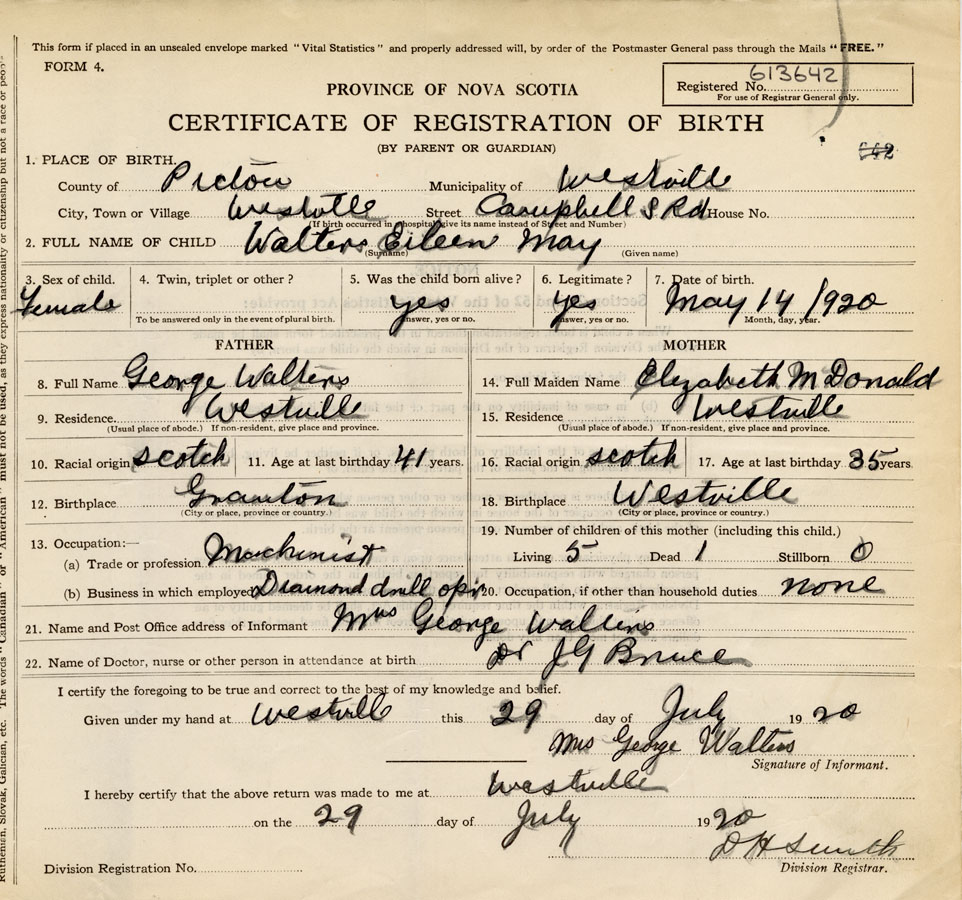 This form if placed in an unsealed envelope marked "Vital Statistics" and properly addressed will, by order of the Postmaster General pass through the Mails "FREE."
FORM 4.
613642
Registered No.
For use of Registrar General only.
PROVINCE OF NOVA SCOTIA
CERTIFICATE OF REGISTRATION OF BIRTH
(BY PARENT OR GUARDIAN)
642
1. PLACE OF BIRTH.
County of Pictou Municipality of Westville
City, Town or Village Westville Street Campbell S Rd House No.
(If birth occurred in hospital give its name instead of Street and Number)
2. FULL NAME OF CHILD Walters Eileen May
(Surname) (Given name)
3. Sex of child. 4. Twin, triplet or other? 5. Was the child born alive? 6. Legitimate? 7. Date of birth.
Female yes yes May 14 1920
To be answered only in the event of plural birth. Answer, yes or no. Answer, yes or no. Month, day, year.
FATHER MOTHER
8. Full Name George Walters 14. Full Maiden Name Elizabeth McDonald
9. Residence Westville 15. Residence Westville
(Usual place of abode.) If non-resident, give place and province. (Usual place of abode.) If non-resident, give place and province.
10. Racial origin scotch 11. Age at last birthday 41 years. 16. Racial origin scotch 17. Age at last birthday 35 years
12. Birthplace Granton 18. Birthplace Westville
(City or place, province or country.) (City or place, province or country.)
13. Occupation:— 19. Number of children of this mother (including this child.)
(a) Trade or profession Machinist Living 5 Dead 1 Stillborn 0
(b) Business in which employed Diamond drill opr 20. Occupation, if other than household duties none
21. Name and Post Office address of Informant Mrs George Walters
22. Name of Doctor, nurse or other person in attendance at birth Dr J G Bruce
I certify the foregoing to be true and correct to the best of my knowledge and belief.
Given under my hand at Westville this 29 day of July 1920
Mrs George Walters
Signature of Informant.
I hereby certify that the above return was made to me at Westville
on the 29 day of July 1920
D H Smith
Division Registration No. Division Registrar.
Ruthenian, Slovak, Galician, etc. The words "Canadian" or "American" must not be used, as they express nationality or citizenship but not a race or peop